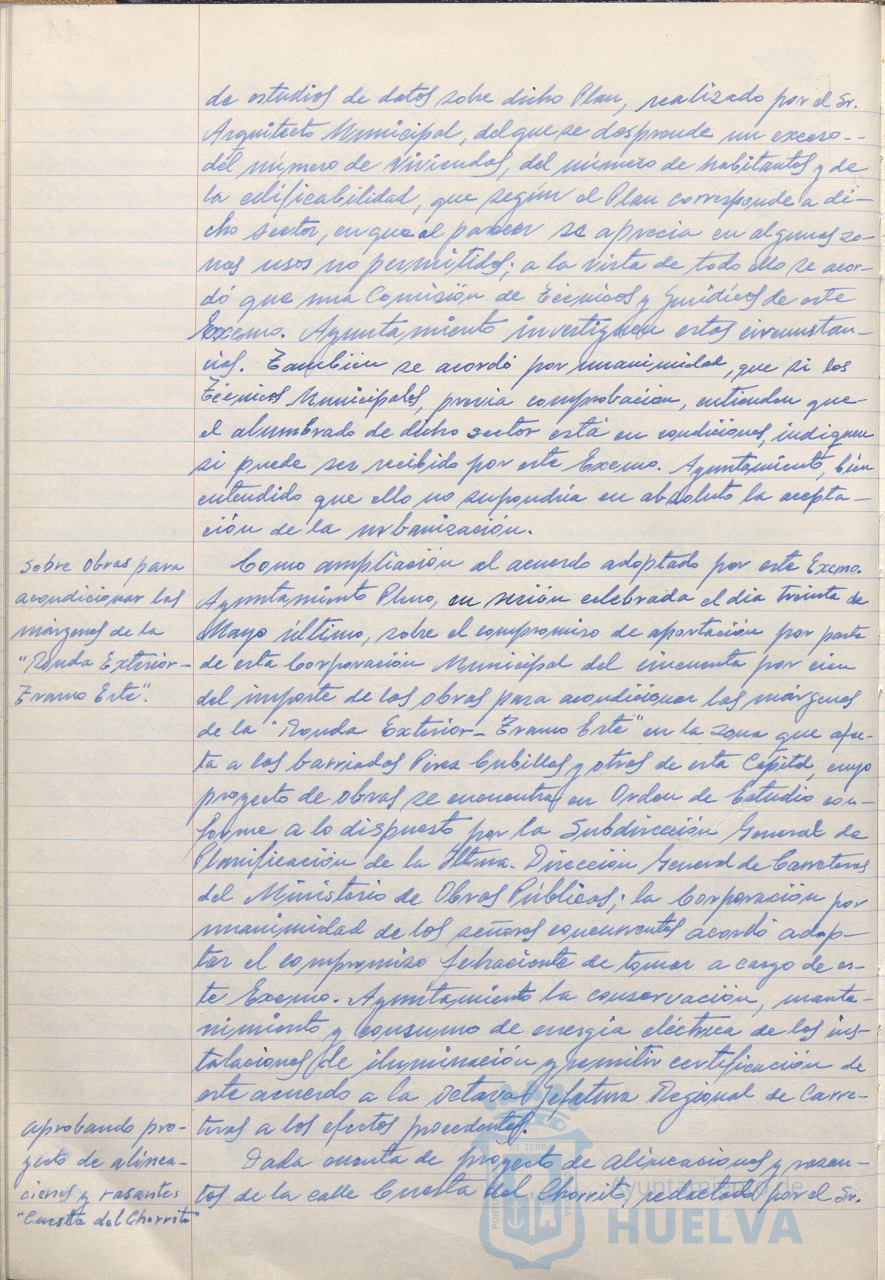 de estudios de datos sobre dicho Plan, realizado por el Sr.
Arquitecto Municipal, del que se desprende un exceso-
del número de Viviendas, del número de habitantes y de
la edificabilidad, que según el Plan corresponde a di-
cho sector, en que al parecer se aprecia en algunas zo-
nas usos no permitidos; a la vista de todo ello se acor-
dó que una Comisión de Técnicos y Jurídicos de este
Excmo. Ayuntamiento investiguen estas circunstan-
cias. Tambien se acordó por unanimidad, que si los
Técnicos Municipales, previa comprobación, entienden que
el alumbrado de dicho sector está en condiciones, indiquen
si puede ser recibido por este Excmo. Ayuntamiento, bien
entendido que ello no supondría en absoluto la acepta-
ción de la urbanización.
Sobre obras para
acondicionar las
márgenes de la
"Ronda Exterior-
Tramo Este".
Como ampliación al acuerdo adoptado por este Excmo.
Ayuntamiento Pleno, en sesión celebrada el día treinta de
Mayo último, sobre el compromiso de aportación por parte
de esta Corporación Municipal del cincuenta por cien
del importe de las obras para acondicionar las márgenes
de la "Ronda Exterior-Tramo Este" en la zona que afec-
ta a las barriadas Pérez Cubillas y otras de esta Capital, cuyo
proyecto de obras se encuentra en Orden de Estudio con-
forme a lo dispuesto por la Subdirección General de
Planificación de la Iltma. Dirección General de Carreteras
del Ministerio de Obras Públicas; la Corporación por
unanimidad de los señores concurrentes acordó adop-
tar el compromiso fehaciente de tomar a cargo de es-
te Excmo. Ayuntamiento la conservación, mante-
nimiento y consumo de energía eléctrica de las ins-
talaciones de iluminación y remitir certificación de
este acuerdo a la Octava Jefatura Regional de Carre-
teras a los efectos procedentes.
aprobando pro-
yecto de alinea-
ciones y rasantes
"Cuesta del Chorrito"
Dada cuenta de proyecto de alineaciones y rasan-
tes de la calle Cuesta del Chorrito, redactado por el Sr.
Ayuntamiento de
HUELVA